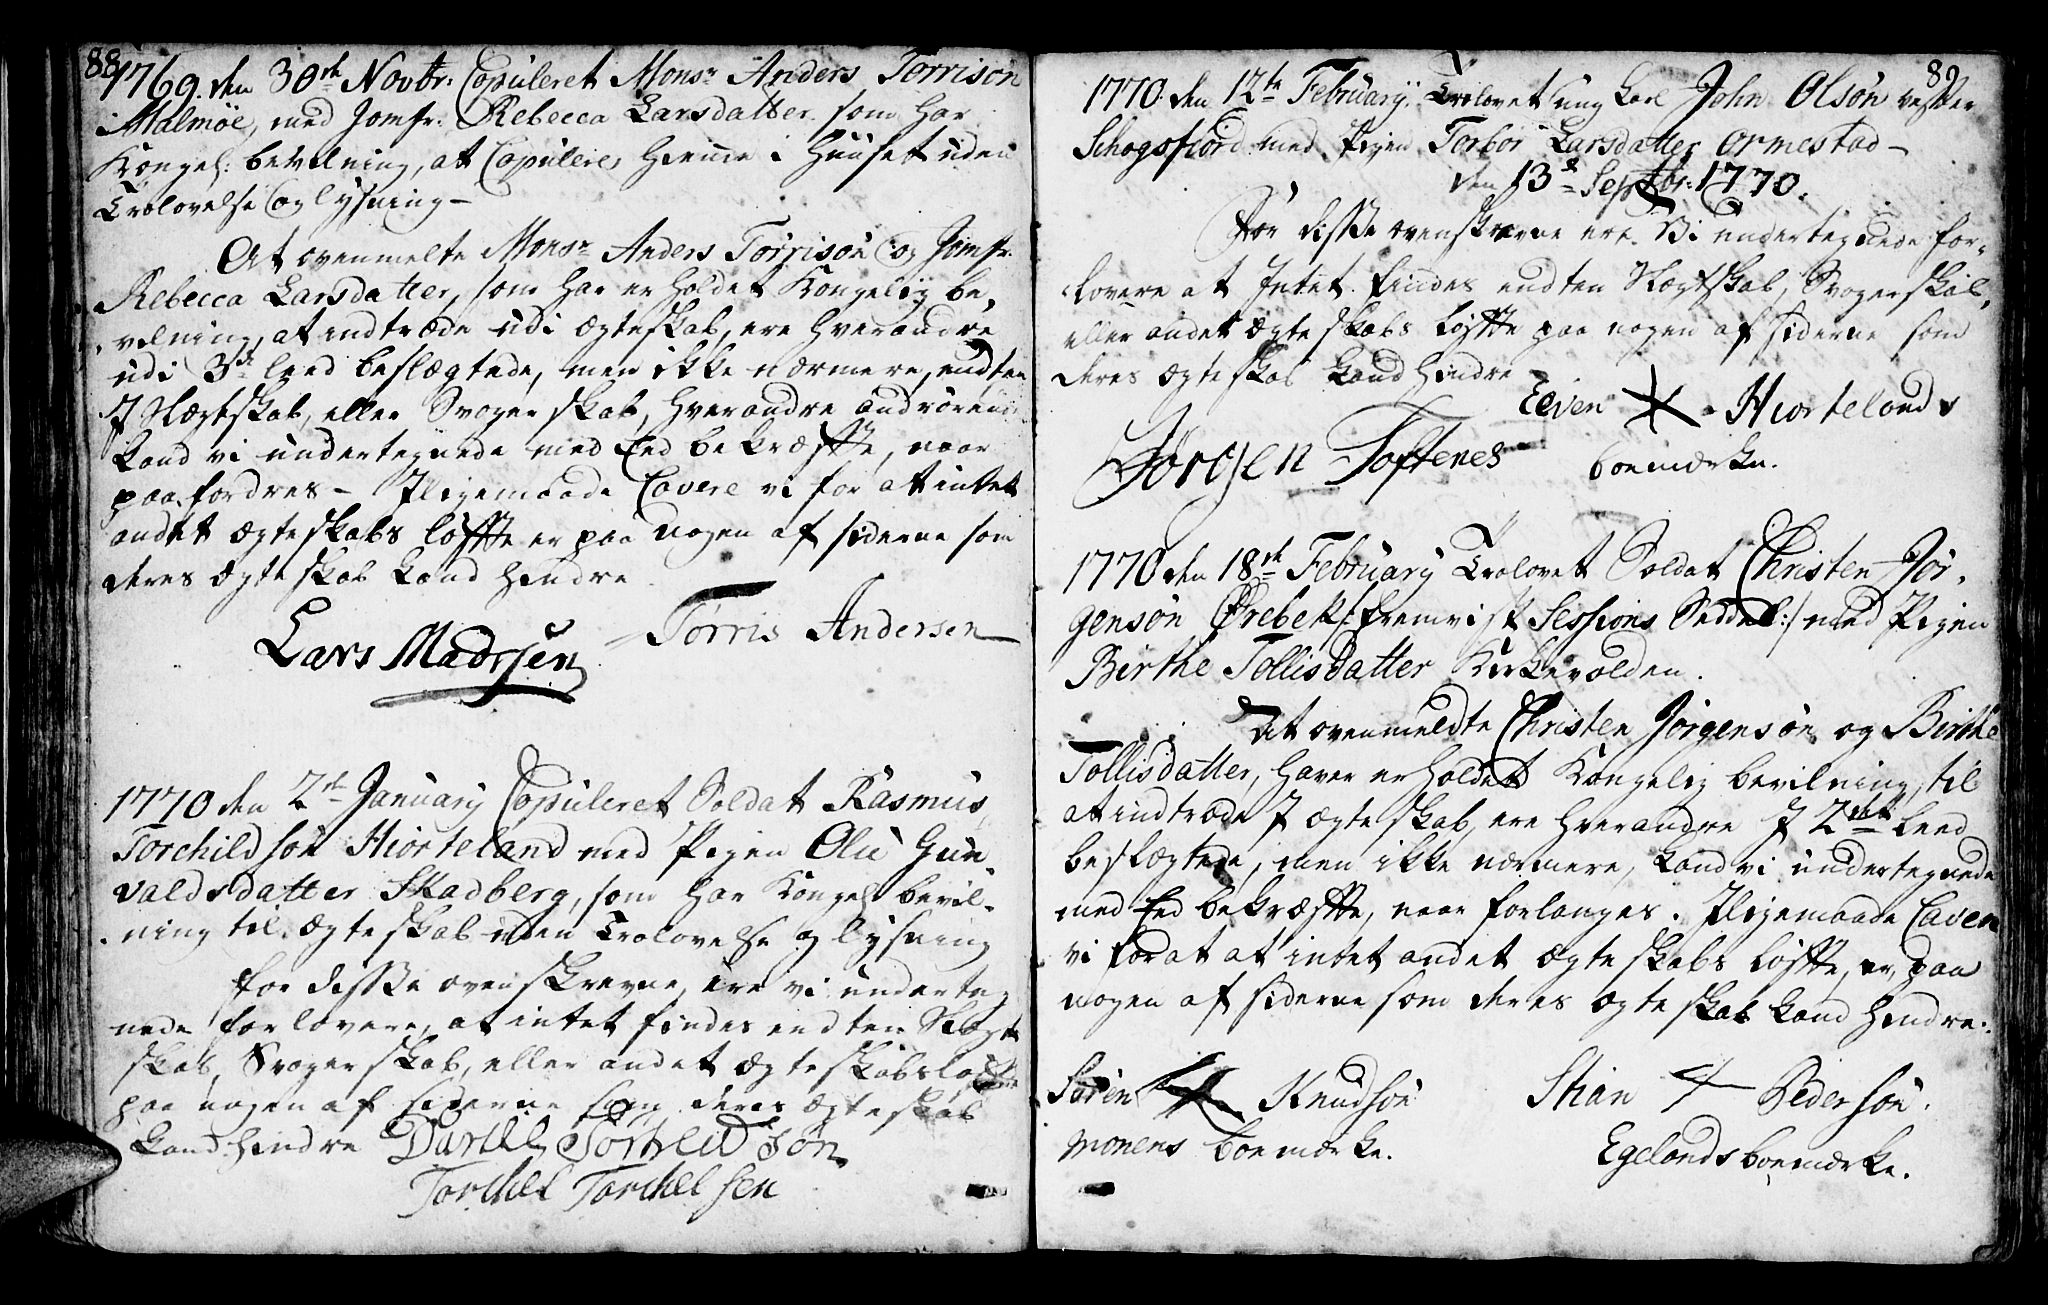 88
1769. den 30te Novbr: Copuleret Monsr Anders Torrison
Malmøe, med Jomfr. Rebecca Larsdatter som har
Kongel: bevilning, at Copuleres hieme i Huuset uden
Trolovelse og lysning –
At ovenmelte Monsr Anders Torrisøn og Jomfr.
Rebecca Larsdatter, som har erholdet Kongelig be,
vilning, at indtræde udi ægteskab, ere hverandre
udi 3de leed beslægtede, men ikke nærmere, endten
I Slægtskab, eller Svogerskab, hverandre andrørende
kand vi undertegnede med Eed bekræffte, naar
paa fordres – Iligemaade Cavere vi for at intet
andet ægteskabs løffte er paa nogen af siderne som
deres ægteskab kand hindre
Lars Madssen Tørris Andersen
1770 den 2de January Copuleret Soldat Rasmus
Torchildsøn Hiorteland med Pigen Olü Gun
valdsdatter Skadberg, som har Kongel: bevil-
ning til ægteskab uden Trolovelse og lysning
for disse ovenskrevne, ere vi underteg
nede forlovere, at intet findes endten Slægt
skab, Svogerskab, eller andet ægteskabs løffte
paa nogen af siderne som deres ægteskab
kand hindre
Torchel Torchelsen
89
1770. den 12te February, Trolovet ung karl John Olsøn vestter
Schogsfiord med Pigen Torbor Larsdatter Ormestad –
den 13de Septbr: 1770.
For disse ovenskrevne ere Vi undertegnede for-
lovere at Intet findes endten Slægtskab, Svogerskab,
eller andet ægteskabs løffte paa nogen af siderne som
deres ægteskab kand hindre
Eeven Hiortelands
Jørgen Toftenes boemærke.
1770 den 18de February Trolovet Soldat Christen Jør,
gensøn Ørebek /: fremvist Sessions Seddel :/ med Pigen
Birthe Tollisdatter Kirkevolden.
At ovenmeldte Christen Jørgensøn og Birthe
Tollisdatter, haver erholdet Kongelig bevilning, til
at indtræde I ægteskab, ere hverandre I 2det leed
beslægtede, men ikke nærmere, kand vi undertegnede
med Eed bekræffte, naar forlanges. Iligemaade Caveri
vi for at at intet andet ægteskabs løffte, er paa
nogen af siderne som deres ægteskab kand hindre.
Sørin Knudsøn Stian Pedersøn.
Monens boemærke. Egelands boemærke.